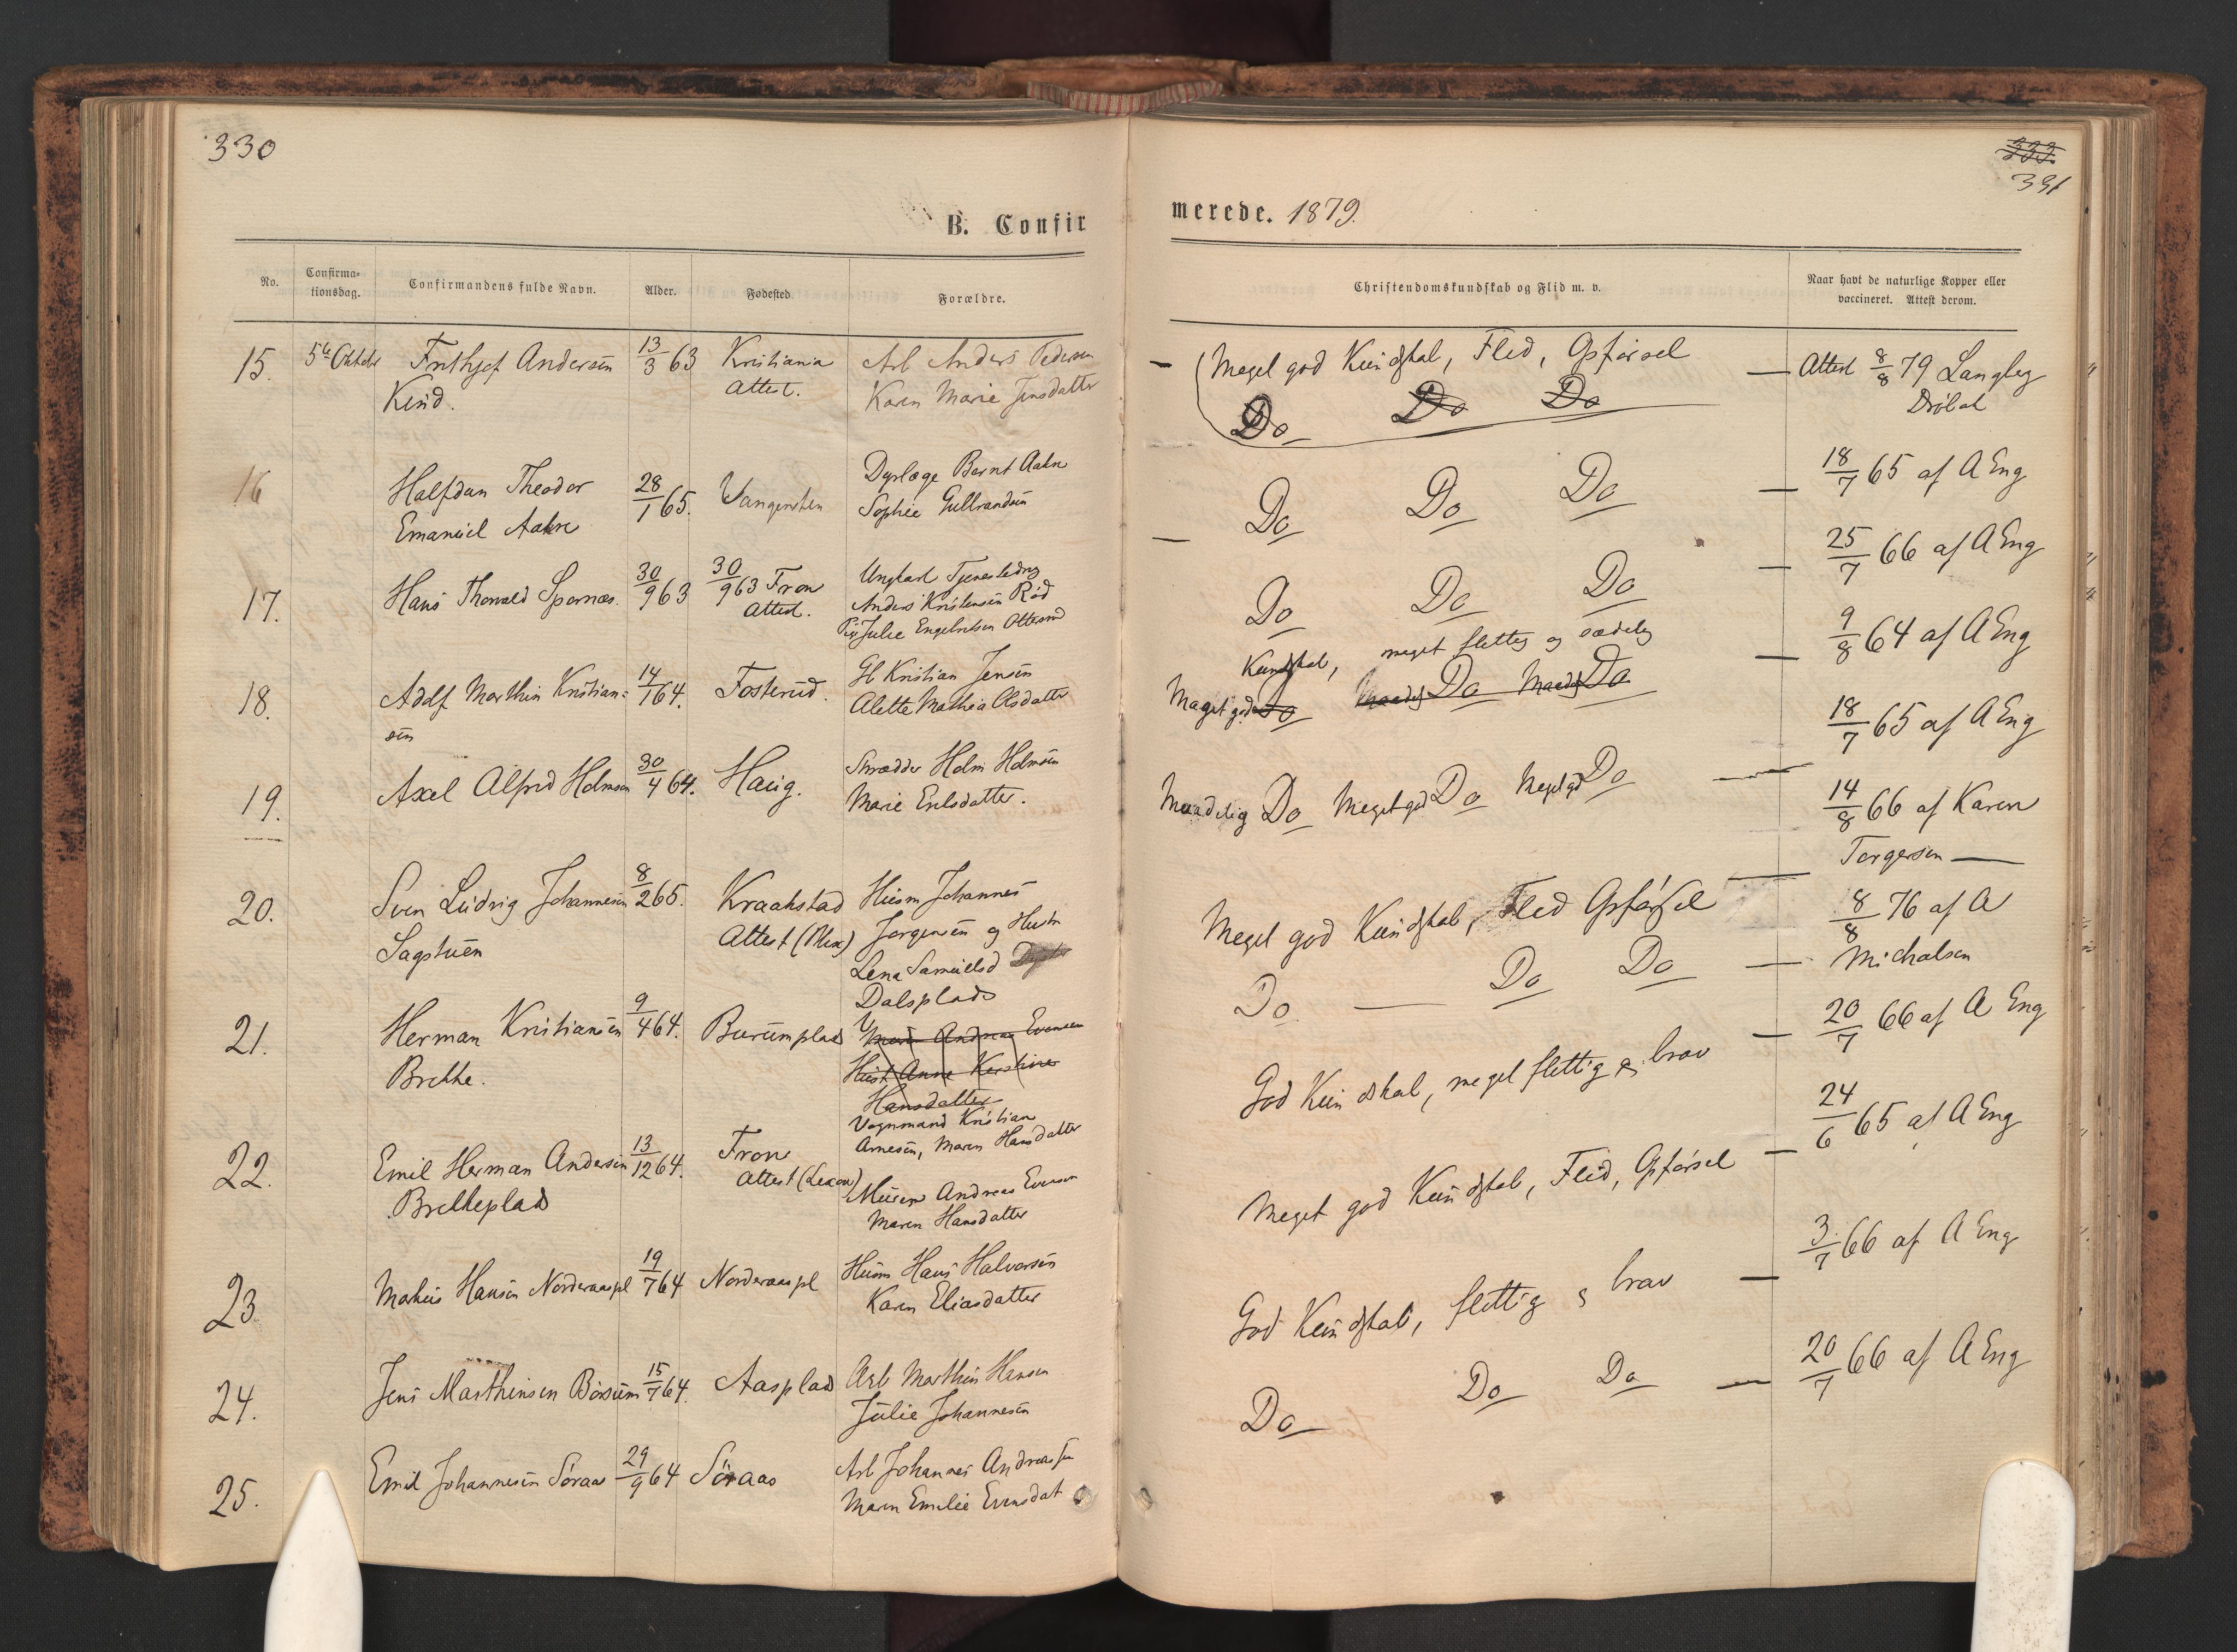 330
B. Confir
No.
Confirma-
tionsdag.
Confirmandens fulde Navn.
Alder.
Fødested
Forældre.
15. 5te Oktobr Frithjof Andersen 13/3 63 Kristiania Arb Anders Pedersen
Kind. Attest. Karen Marie Jensdatter
16 Halfdan Theodor 28/1 65. Vangensten Dyrlæge Bernt Aakre
Emanuel Aakre Sophie Gulbrandsen
17. Hans Thorvald Spornæs. 30/9 63 30/9 63 Fron Ungkarl Tjenestedrg
Attest. Anders Kristensen Röd
Pig Julie Engebretsen Ottersrud
18. Adolf Marthin Kristian= 14/1 64. Fosterud. Gb Kristian Jensen
sen Alette Mathea Olsdatter
19. Axel Alfred Holmsen 30/4 64. Haug. Skrædder Holm Holmsen
Marie Erlsdatter.
20. Sven Ludvig Johannesen 8/2 65. Kraakstad Husm Johannes
Sagstuen Attest (Mæx) Jørgensen og Hustr
Lena Samuelsd
Dalsplads
21. Herman Kristiansen 9/4 64. Burumplads Andreas Evensen
Brekke. Hust Anne Kerstine
Hansdatter
Vognmand Kristian
Arnesen, Maren Hansdatter
22. Emil Herman Andersen 13/12 64. Fron
Brekkeplads Attest (Lexow) Murer Andreas Evensen
Maren Hansdatter
23. Markus Hansen Norderaaspl 19/7 64 Norderaaspl Husm Hans Halvorsen
Karen Eliasdatter
24. Jens Marthinsen Börsum 15/7 64. Aasplads Arb Marthin Hansen
Julie Johannesen
25. Emil Johannesen Söraas 29/9 64 Söraas Arb Johannes Andreassen
Maren Emilie Evensdat
333.
331
merede. 1879.
Christendomskundskab og Flid m. v.
Naar havt de naturlige Kopper eller
vaccineret. Attest derom.
Meget god Kundskab, Flid, Opförsel — Attest 8/8 79 Langberg
Do Do Do Dröbak
Do Do Do — 18/7 65 af A Eng
Do Do Do — 25/7 66 af A Eng
Kundskab, meget flittig og sædelig — 9/8 64 af A Eng
Meget god Do Maadelig Do Maadelig Do
18/7 65 af A Eng
Maadelig Do Meget god Do Meget god Do — 14/8 66 af Karen
Torgersen —
Meget god Kundskab, Flid Opförsel — 8/8 76 af A
Michalsen
Do — Do Do — 20/7 66 af A Eng
God Kundskab, meget flittig og brav — 24/6 65 af A Eng
Meget god Kundskab, Flid, Opförsel — 3/7 66 af A Eng
God Kundskab, flittig og brav — 20/7 66 af A Eng
Do Do Do —